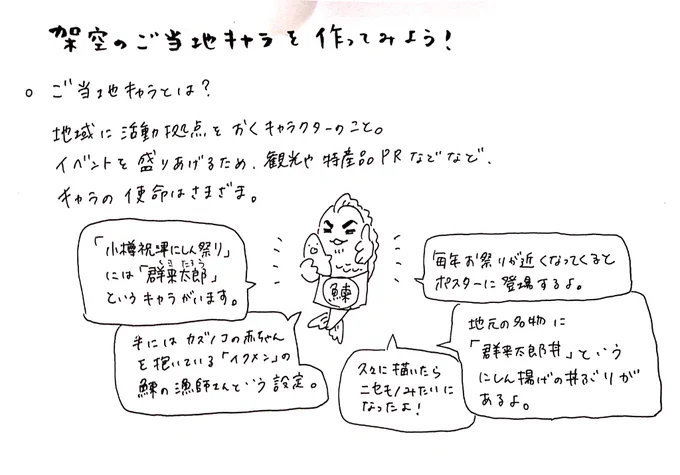 架空のご当地キャラを作ってみよう！
○ ご当地キャラとは？
地域に活動拠点をおくキャラクターのこと。
イベントを盛りあげるため、観光や特産品PRなどなど、
キャラの使命はさまざま。
「小樽祝津にしん祭り」
には「群来太郎」
くきたろう
というキャラがいます。
手にはカズノコの赤ちゃん
を抱いている「イクメン」の
鰊の漁師さんという設定。
鰊
毎年お祭りが近くなってくると
ポスターに登場するよ。
地元の名物に
「群来太郎丼」という
にしん揚げの丼ぶりが
あるよ。
久々に描いたら
ニセモノみたいに
なったよ！